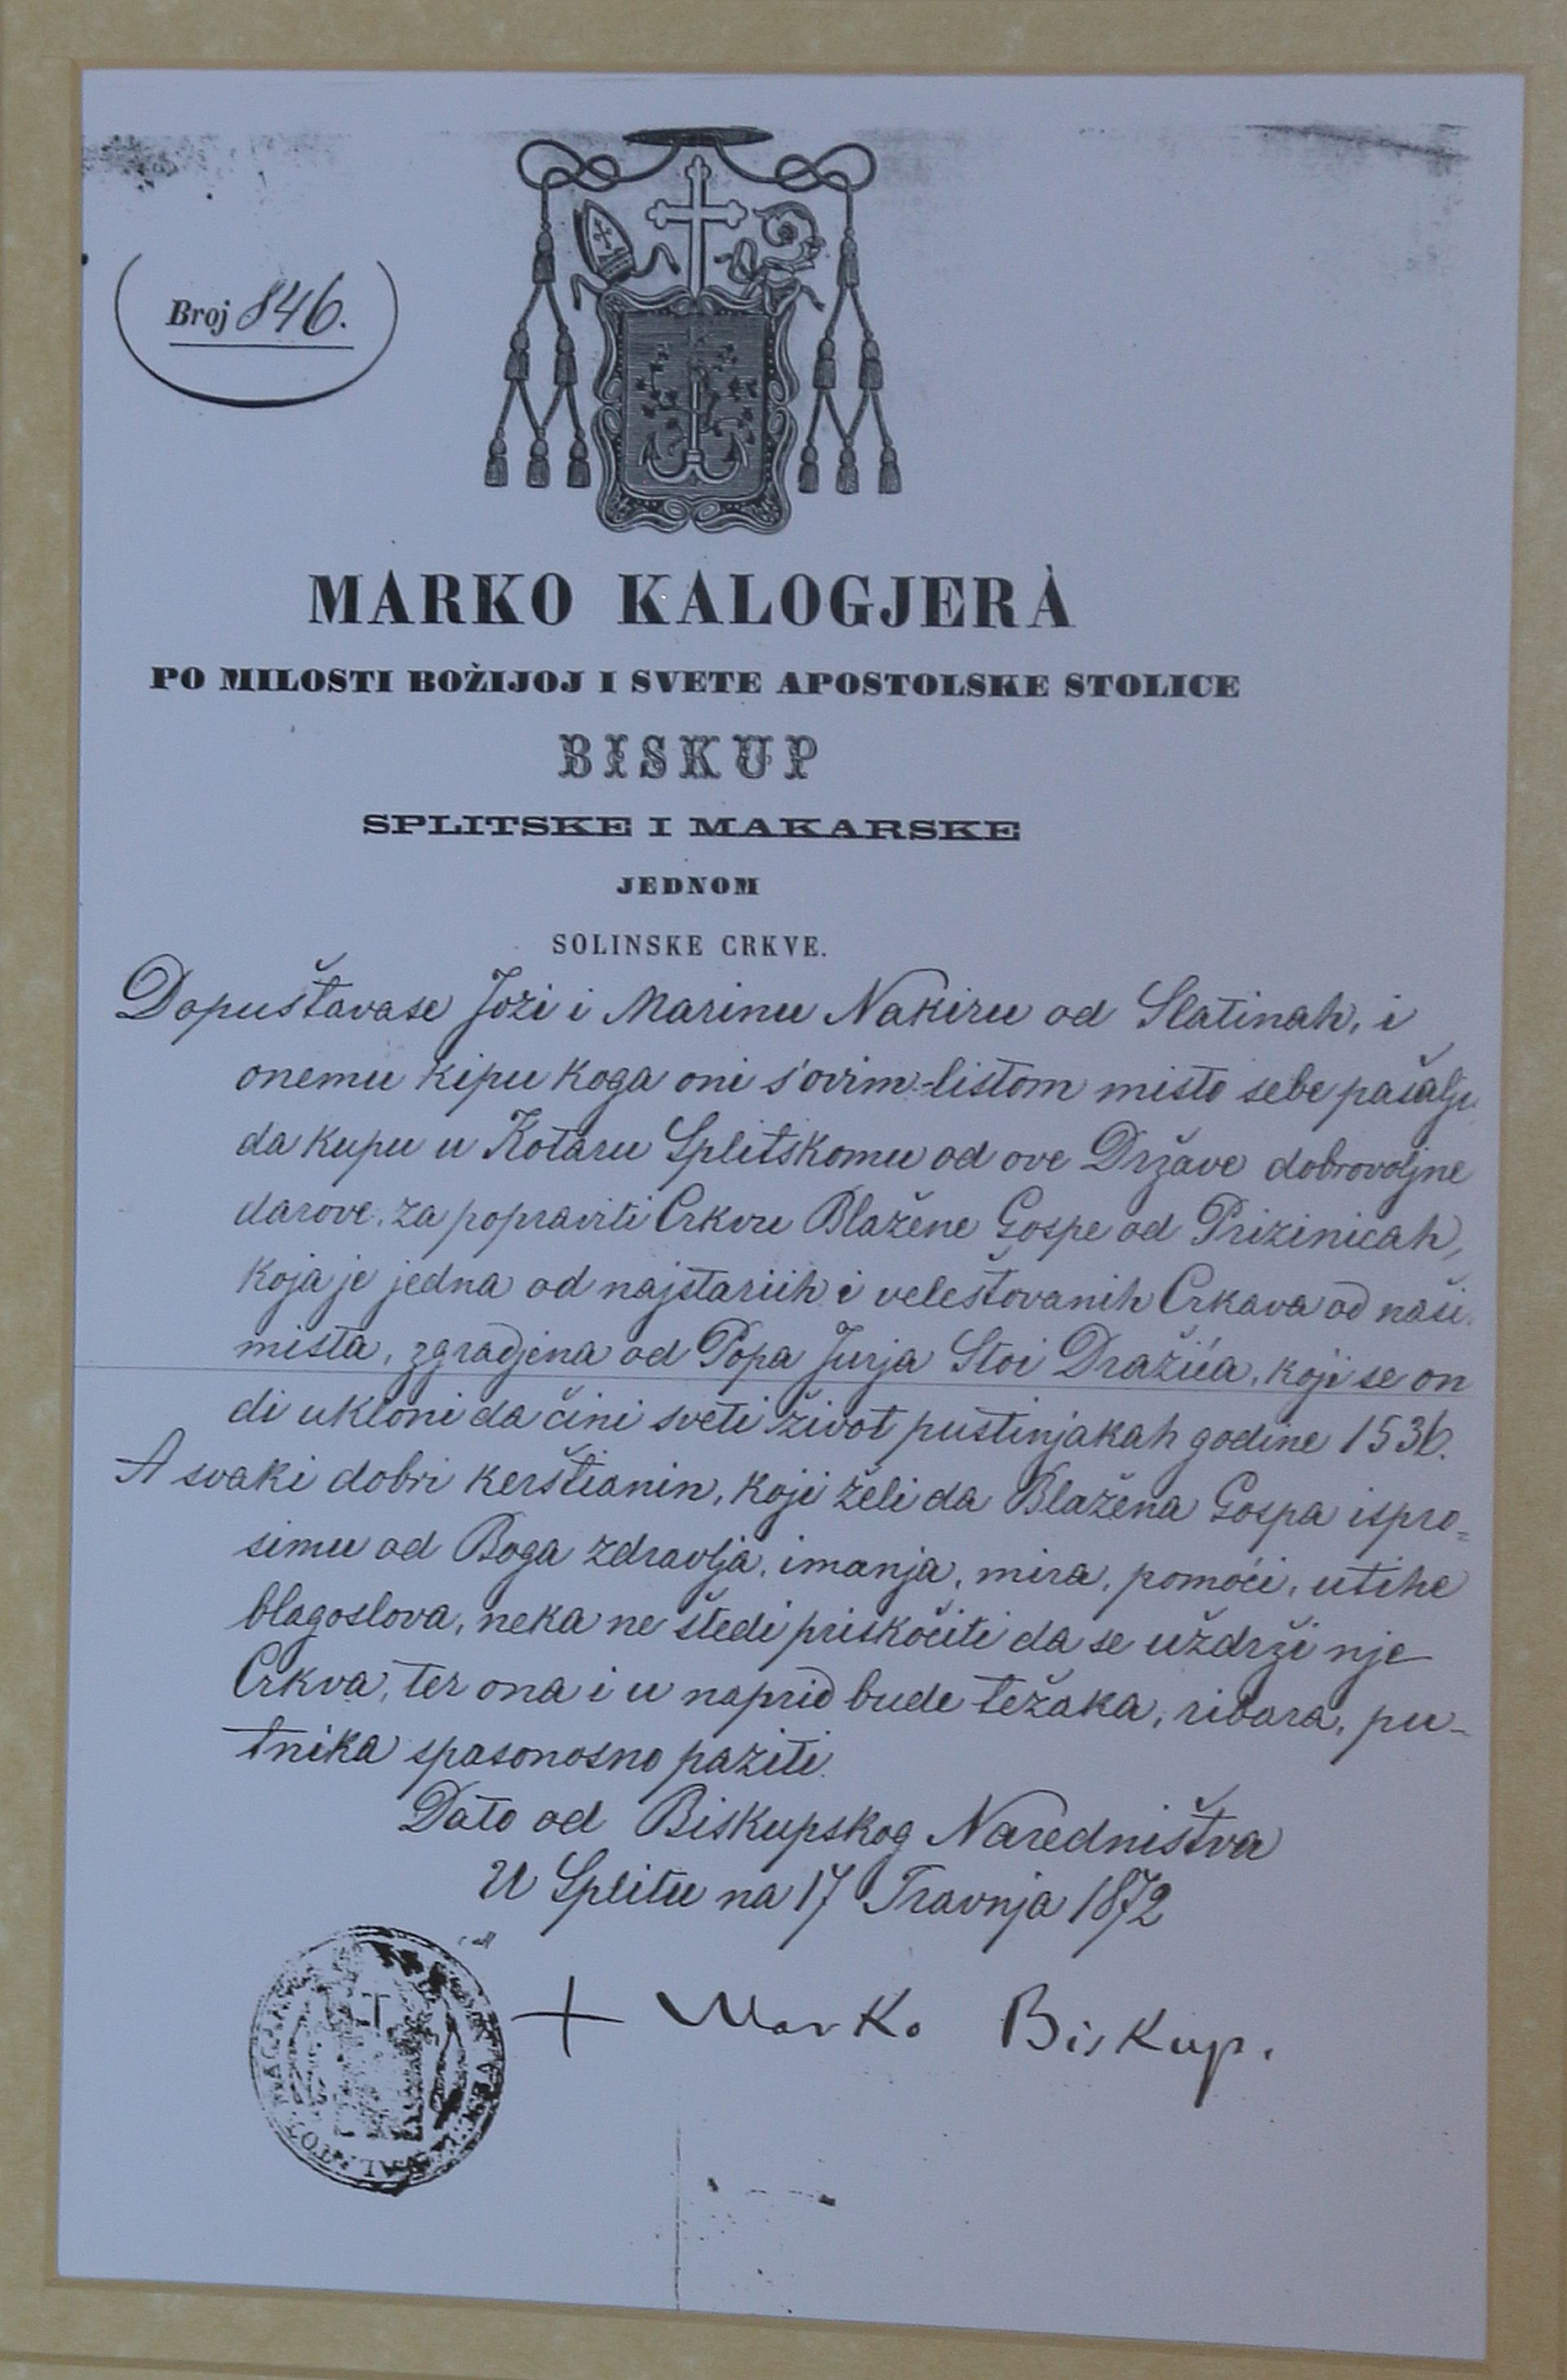 Broj 846.
MARKO KALOGJERÀ
PO MILOSTI BOŽIJOJ I SVETE APOSTOLSKE STOLICE
BISKUP
SPLITSKE I MAKARSKE
JEDNOM
SOLINSKE CRKVE.
Dopuštavase Jozi i Marinu Nakiru od Slatinah, i
onemu kipu koga oni s'ovim-listom misto sebe pašalju
da kupu u Kotaru Splitskomu od ove Države dobrovoljne
darove, za popraviti Crkvu Blažene Gospe od Prizinicah,
koja je jedna od najstariih i veleštovanih Crkava od naši
mista, zgradjena od Popa Jurja Stoi Dražića, koji se on
di ukloni da čini sveti život pustinjakah godine 1536.
A svaki dobri kerštianin, koji želi da Blažena Gospa ispro=
simu od Boga zdravlja, imanja, mira, pomoći, utihe
blagoslova, neka ne štedi priskočiti da se uždrži nje
Crkva, ter ona i u naprid bude težaka, ribara, pu-
tnika spasonosno paziti.
Dato od Biskupskog Naredništva
U Splitu na 17 Travnja 1872
+ Marko Biskup.